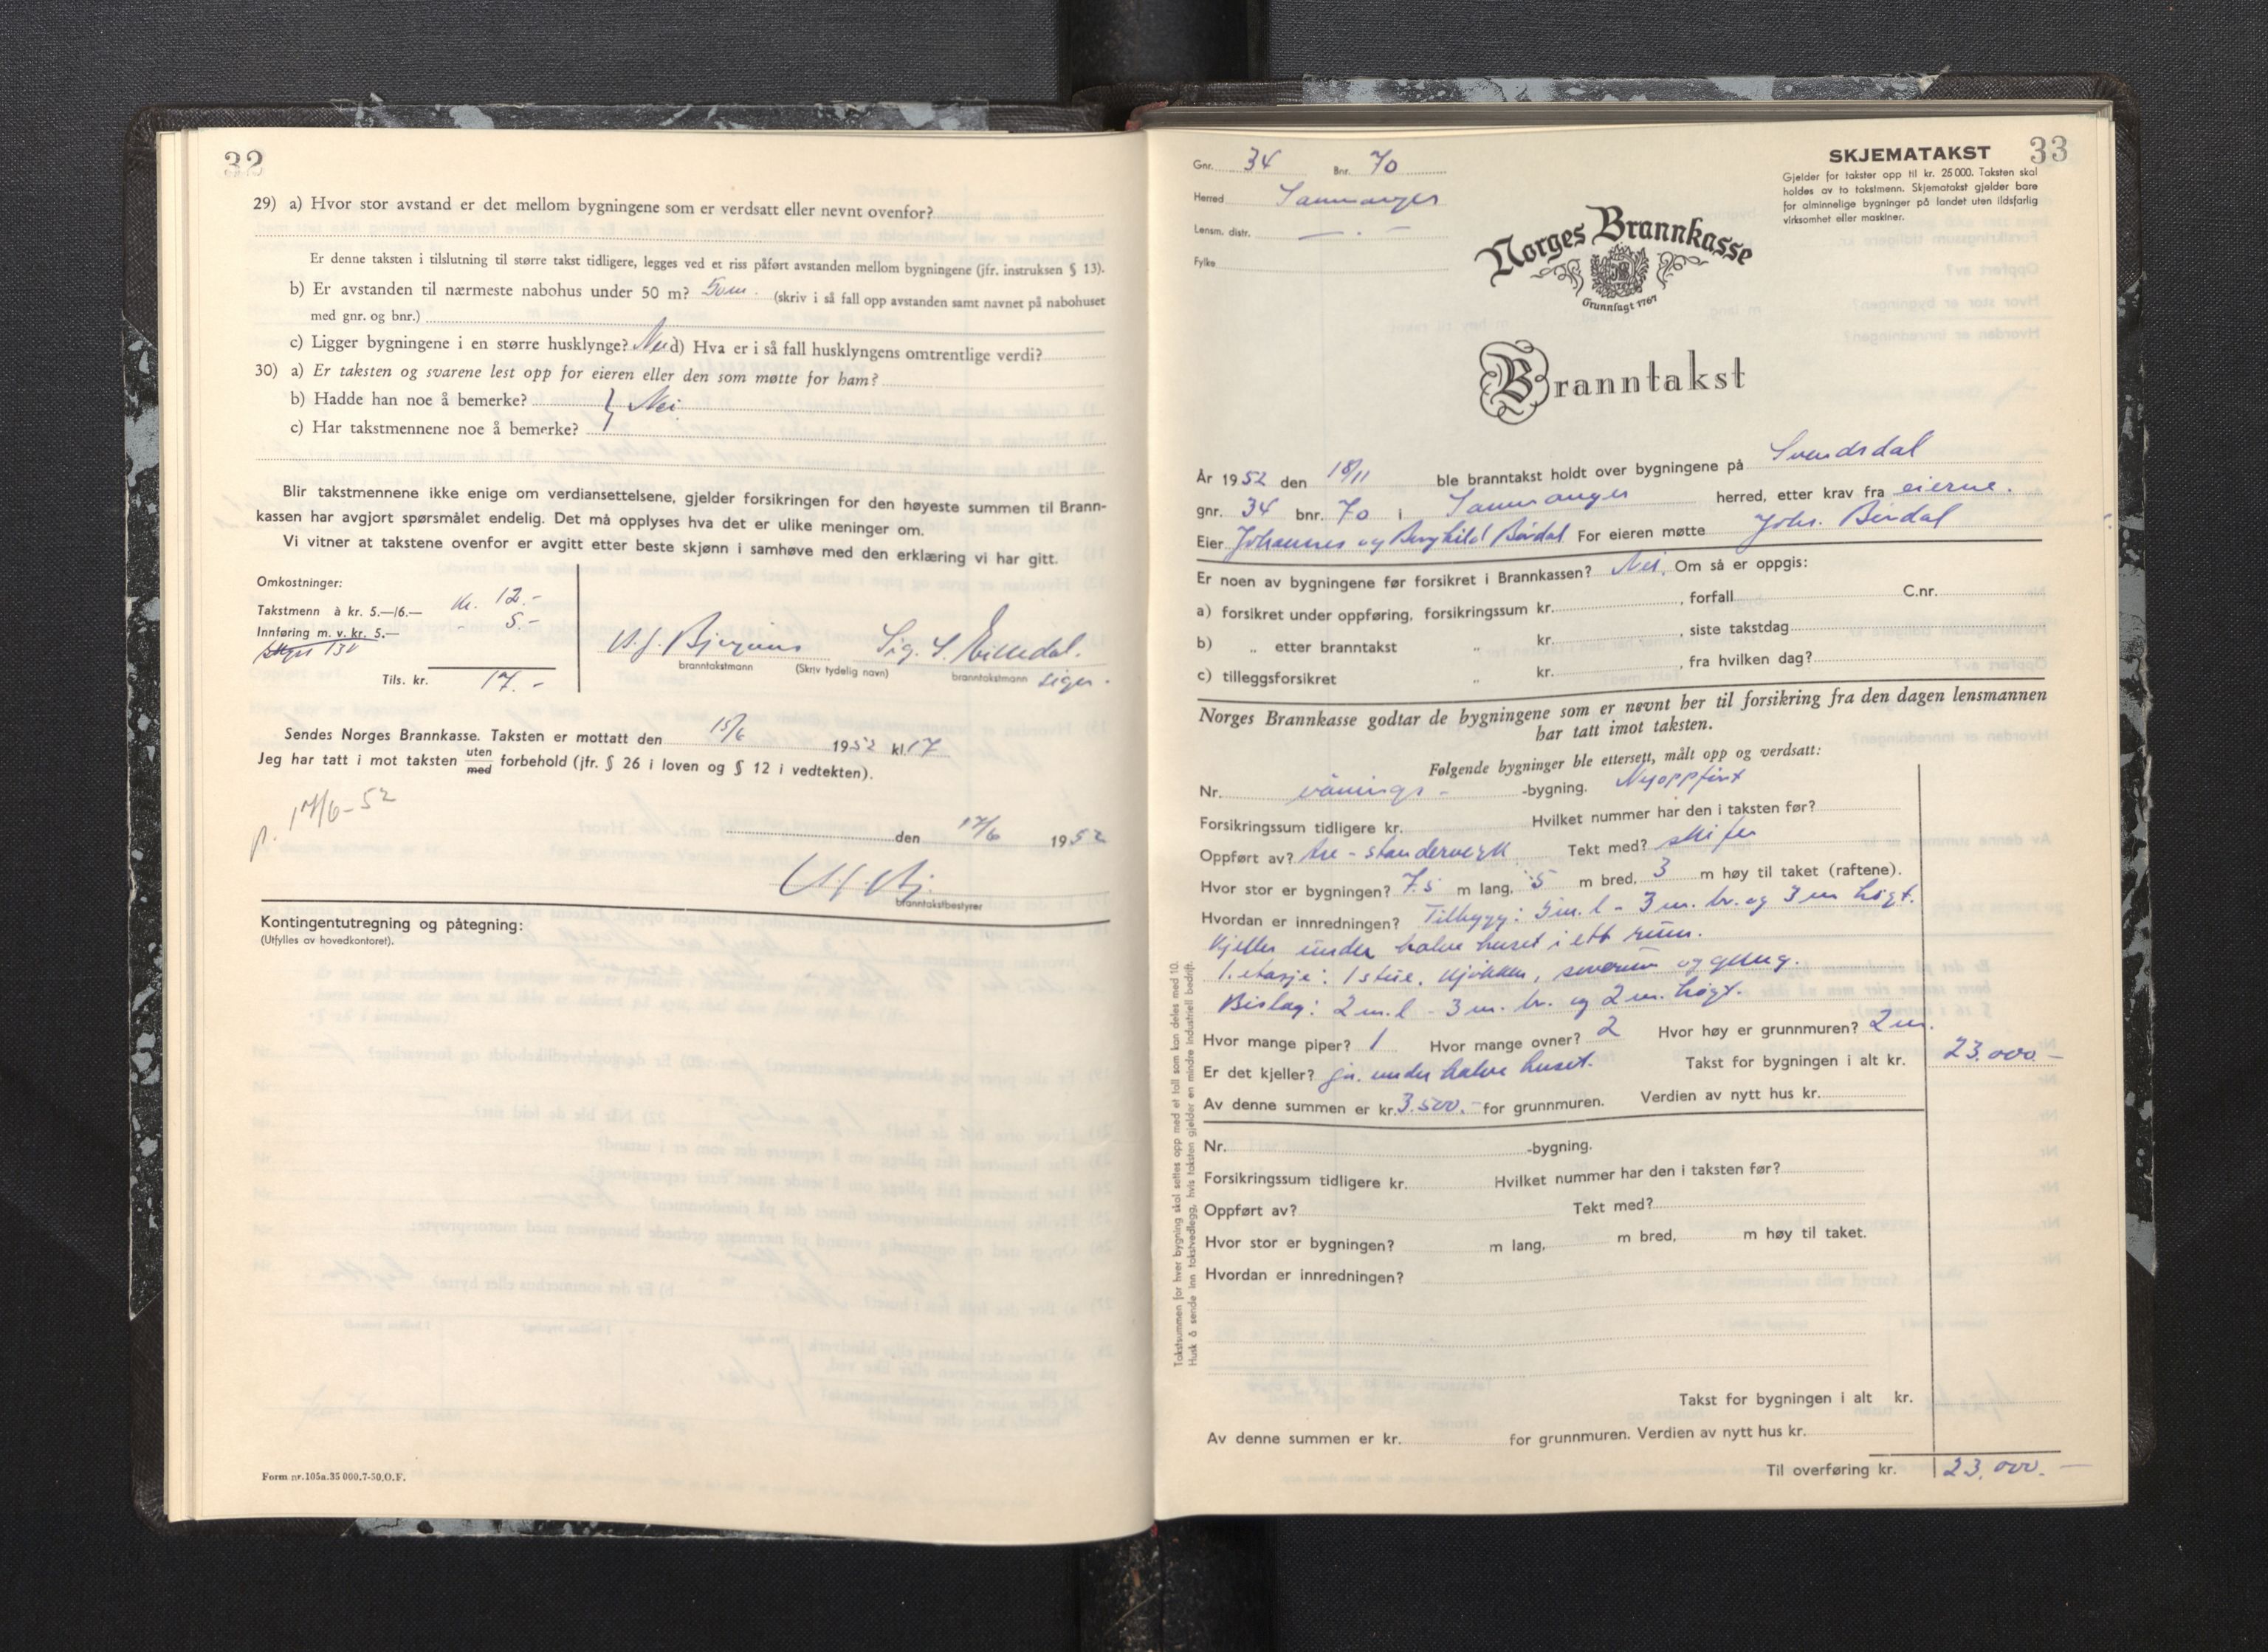 32
29) a) Hvor stor avstand er det mellom bygningene som er verdsatt eller nevnt ovenfor?
Er denne taksten i tilslutning til større takst tidligere, legges ved et riss påført avstanden mellom bygningene (jfr. instruksen § 13).
b) Er avstanden til nærmeste nabohus under 50 m? 50 m. (skriv i så fall opp avstanden samt navnet på nabohuset
med gnr. og bnr.)
c) Ligger bygningene i en større husklynge? Nei d) Hva er i så fall husklyngens omtrentlige verdi?
30) a) Er taksten og svarene lest opp for eieren eller den som møtte for ham?
b) Hadde han noe å bemerke? } Nei
c) Har takstmennene noe å bemerke?
Blir takstmennene ikke enige om verdiansettelsene, gjelder forsikringen for den høyeste summen til Brann-
kassen har avgjort spørsmålet endelig. Det må opplyses hva det er ulike meninger om.
Vi vitner at takstene ovenfor er avgitt etter beste skjønn i samhøve med den erklæring vi har gitt.
Omkostninger:
Takstmenn à kr. 5.—/6.— kr. 12.-
Innføring m. v. kr. 5.— - 5.-
Tils. kr. 17.-
branntakstmann (Skriv tydelig navn) branntakstmann
Sendes Norges Brannkasse. Taksten er mottatt den 15/6 1952 kl. 17
Jeg har tatt i mot taksten uten med forbehold (jfr. § 26 i loven og § 12 i vedtekten).
p. 17/6-52
den 17/6 1952
branntakstbestyrer
Kontingentutregning og påtegning:
(Utfylles av hovedkontoret).
Form nr. 105a. 35 000. 7-50. O. F.
33
SKJEMATAKST
Gjelder for takster opp til kr. 25 000. Taksten skal
holdes av to takstmenn. Skjematakst gjelder bare
for alminnelige bygninger på landet uten ildsfarlig
virksomhet eller maskiner.
Gnr. 34 Bnr. 70
Herred Samnanger
Lensm. distr. — . —
Fylke
Norges Brannkasse
Grunnlagt 1767
Branntakst
År 1952 den 18/11 ble branntakst holdt over bygningene på Svendsdal
gnr. 34 bnr. 70 i Samnanger herred, etter krav fra eierne.
Eier Johannes og Borghild Børdal For eieren møtte Johs. Børdal
Er noen av bygningene før forsikret i Brannkassen? Nei. Om så er oppgis:
a) forsikret under oppføring, forsikringssum kr. , forfall C.nr.
b) „ etter branntakst „ kr. , siste takstdag
c) tilleggsforsikret „ kr. , fra hvilken dag?
Norges Brannkasse godtar de bygningene som er nevnt her til forsikring fra den dagen lensmannen
har tatt imot taksten.
Følgende bygninger ble ettersett, målt opp og verdsatt:
Nr. vånings- -bygning. Nyoppført
Forsikringssum tidligere kr. Hvilket nummer har den i taksten før?
Oppført av? tre-standerverk Tekt med? skifer
Hvor stor er bygningen? 7.5 m lang, 5 m bred, 3 m høy til taket (raftene).
Hvordan er innredningen? Tilbygg: 5 m. l - 3 m. br. og 3 m høgt.
Kjeller under halve huset i ett rum.
1. etasje: 1 stue, kjøkken, soverum og gang.
Bislag: 2 m. l - 3 m. br. og 2 m. høgt.
Hvor mange piper? 1 Hvor mange ovner? 2 Hvor høy er grunnmuren? 2 m.
Er det kjeller? ja. under halve huset. Takst for bygningen i alt kr. 23.000.—
Av denne summen er kr. 3.500.- for grunnmuren. Verdien av nytt hus kr.
Nr. -bygning.
Forsikringssum tidligere kr. Hvilket nummer har den i taksten før?
Oppført av? Tekt med?
Hvor stor er bygningen? m lang, m bred, m høy til taket.
Hvordan er innredningen?
Takst for bygningen i alt kr.
Av denne summen er kr. for grunnmuren. Verdien av nytt hus kr.
Til overføring kr. 23.000.—
Takstsummen for hver bygning skal settes opp med et tall som kan deles med 10.
Husk å sende inn takstvedlegg, hvis taksten gjelder en mindre industriell bedrift.